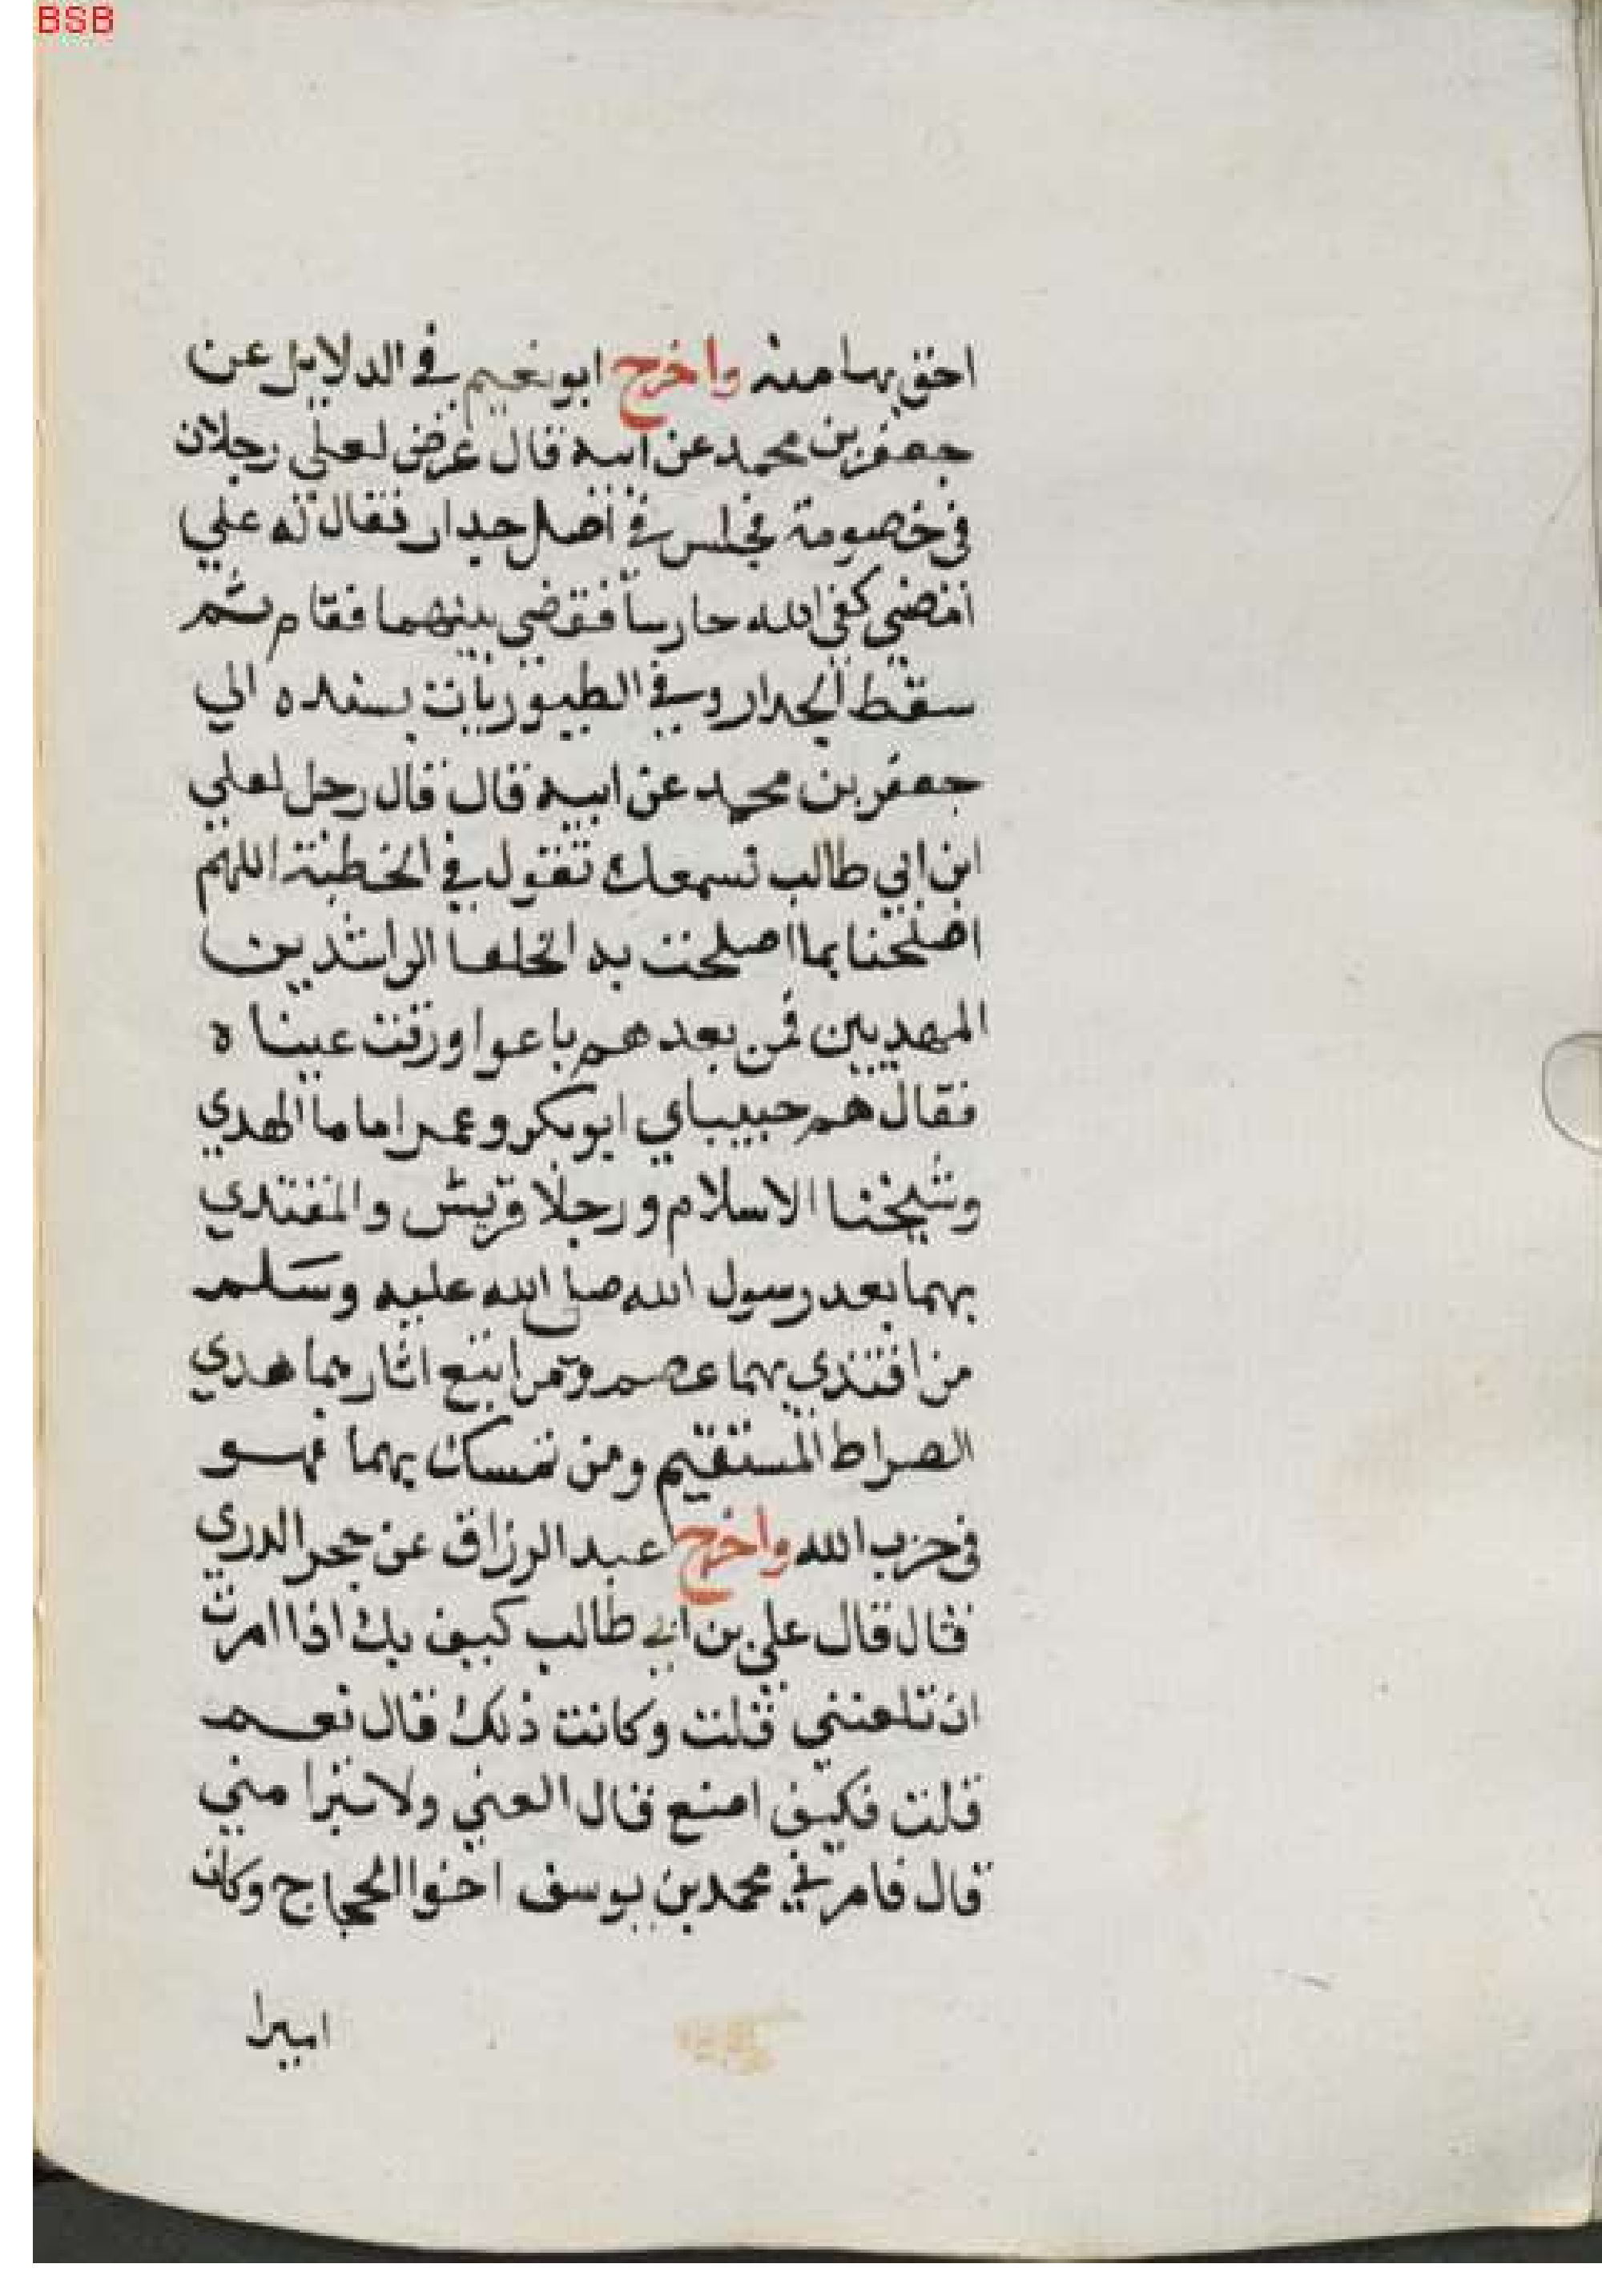 BSB
احق بها منه واخرج ابو نعيم في الدلايل عن
جعفر بن محمد عن ابيه قال عرض لعلي رجلان
في خصومة فجلس في اصل جدار فقال له علي
امضي كفى الله حارسا فقضي بينهما فقام ثم
سقط الجدار وفي الطيوريات بسنده الي
جعفر بن محمد عن ابيه قال قال رجل لعلي
ابن ابي طالب نسمعك تقول في الخطبة اللهم
اصلحنا بما اصلحت به الخلفا الراشدين
المهديين فمن بعدهم باعوا ورقت عيناه
فقال هم حبيباي ابو بكر وعمر اماما الهدي
وشيخنا الاسلام ورجلا قريش والمقتدي
بهما بعد رسول الله صلى الله عليه وسلم
من اقتدي بهما عصم ومن اتبع اثارهما هدي
الصراط المستقيم ومن تمسك بهما فهو
في حزب الله واخرج عبد الرزاق عن حجر الدري
قال قال علي بن ابي طالب كيف بك اذا امرت
ان تلعنني قلت وكانت ذلك قال نعم
قلت فكيف امنع قال العني ولا تبرا مني
قال فامرني محمد بن يوسف اخوا الحجاج وكان
اميرا